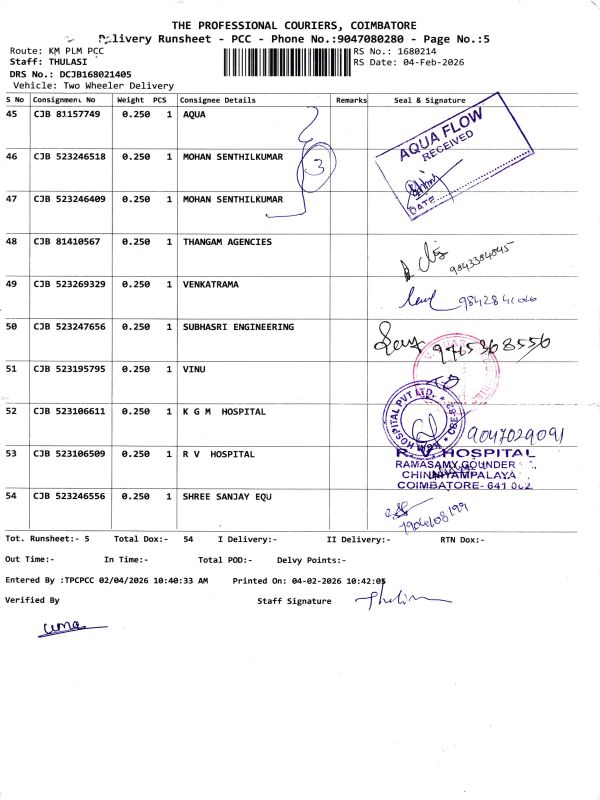 THE PROFESSIONAL COURIERS, COIMBATORE
Delivery Runsheet - PCC - Phone No.:9047080280 - Page No.:5
Route: KM PLM PCC
RS No.: 1680214
Staff: THULASI
RS Date: 04-Feb-2026
DRS No.: DCJB168021405
Vehicle: Two Wheeler Delivery
S No Consignment No Weight PCS Consignee Details Remarks Seal & Signature
45 CJB 81157749 0.250 1 AQUA
AQUA FLOW
RECEIVED
DATE
46 CJB 523246518 0.250 1 MOHAN SENTHILKUMAR
3
47 CJB 523246409 0.250 1 MOHAN SENTHILKUMAR
48 CJB 81410567 0.250 1 THANGAM AGENCIES
49 CJB 523269329 0.250 1 VENKATRAMA
50 CJB 523247656 0.250 1 SUBHASRI ENGINEERING
51 CJB 523195795 0.250 1 VINU
52 CJB 523106611 0.250 1 K G M HOSPITAL
HOSPITAL PVT LTD.
9047029091
53 CJB 523106509 0.250 1 R V HOSPITAL
R.V. HOSPITAL
RAMASAMY GOUNDER
CHINNIYAMPALAYA
COIMBATORE- 641 062.
54 CJB 523246556 0.250 1 SHREE SANJAY EQU
Tot. Runsheet:- 5 Total Dox:- 54 I Delivery:- II Delivery:- RTN Dox:-
Out Time:- In Time:- Total POD:- Delvy Points:-
Entered By :TPCPCC 02/04/2026 10:40:33 AM Printed On: 04-02-2026 10:42:05
Verified By Staff Signature
uma